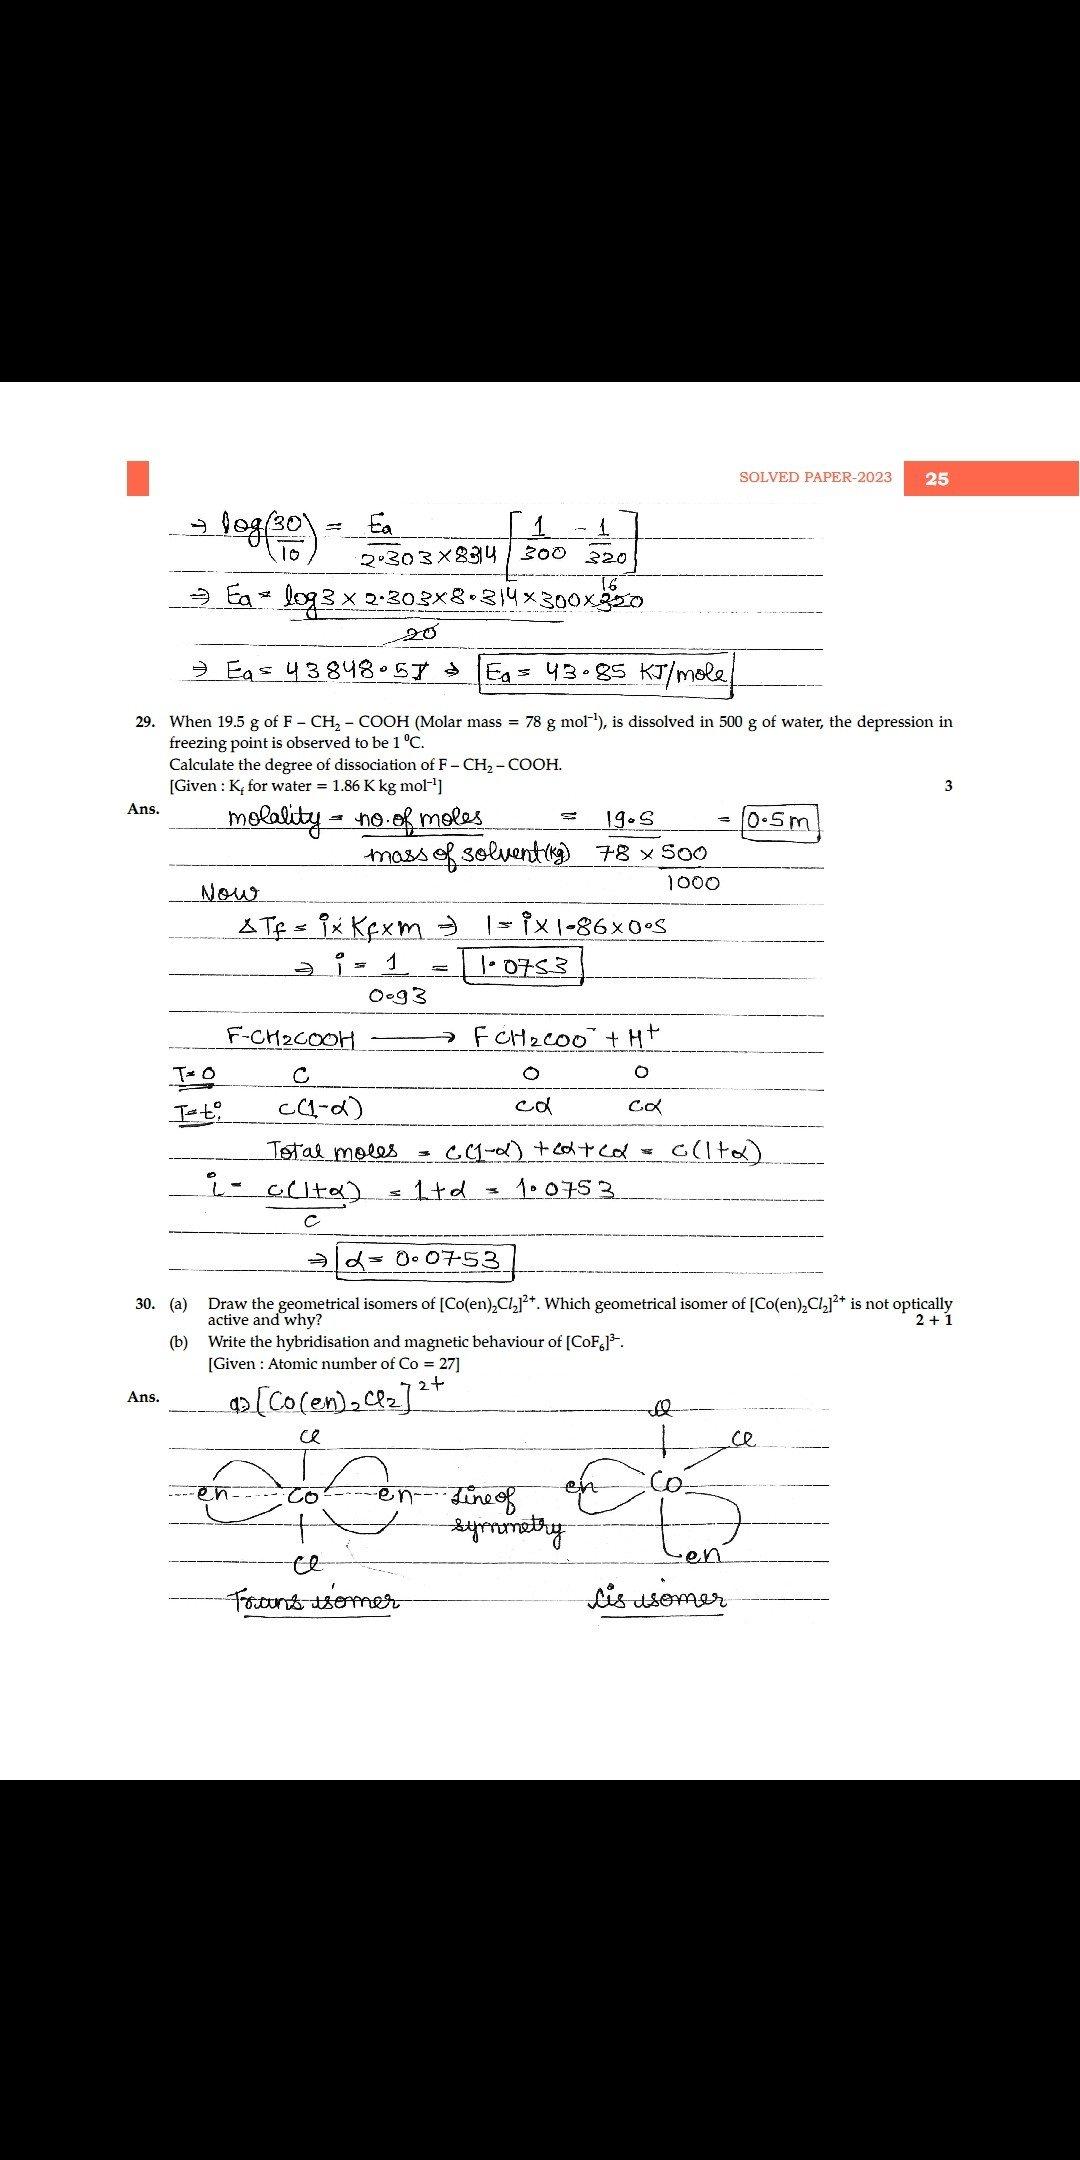 SOLVED PAPER-2023 25
⇒ log(30/10) = Ea/2.303×8314 [1/300 - 1/320]
⇒ Ea = log3 × 2.303×8.314×300×320/20 16
⇒ Ea = 43848.57 ⇒ Ea = 43.85 KJ/mole
29. When 19.5 g of F – CH₂ – COOH (Molar mass = 78 g mol⁻¹), is dissolved in 500 g of water, the depression in
freezing point is observed to be 1 ⁰C.
Calculate the degree of dissociation of F – CH₂ – COOH.
[Given : Kf for water = 1.86 K kg mol⁻¹] 3
Ans. molality = no. of moles/mass of solvent(kg) = 19.5/78 × 500/1000 = 0.5m
Now
ΔTf = i× Kf×m ⇒ 1 = i×1.86×0.5
⇒ i = 1/0.93 = 1.0753
F-CH2COOH ⟶ FCH2COO⁻ + H⁺
T=0 C 0 0
T=t. c(1-α) cα cα
Total moles = c(1-α) + cα + cα = c(1+α)
i = c(1+α)/c = 1+α = 1.0753
⇒ α = 0.0753
30. (a) Draw the geometrical isomers of [Co(en)₂Cl₂]²⁺. Which geometrical isomer of [Co(en)₂Cl₂]²⁺ is not optically
active and why? 2 + 1
(b) Write the hybridisation and magnetic behaviour of [CoF₆]³⁻.
[Given : Atomic number of Co = 27]
Ans. a) [Co(en)₂Cl₂]²⁺
Cl
en Co en Line of
symmetry
Cl
Trans isomer
Cl
Cl
en Co
en
Cis isomer